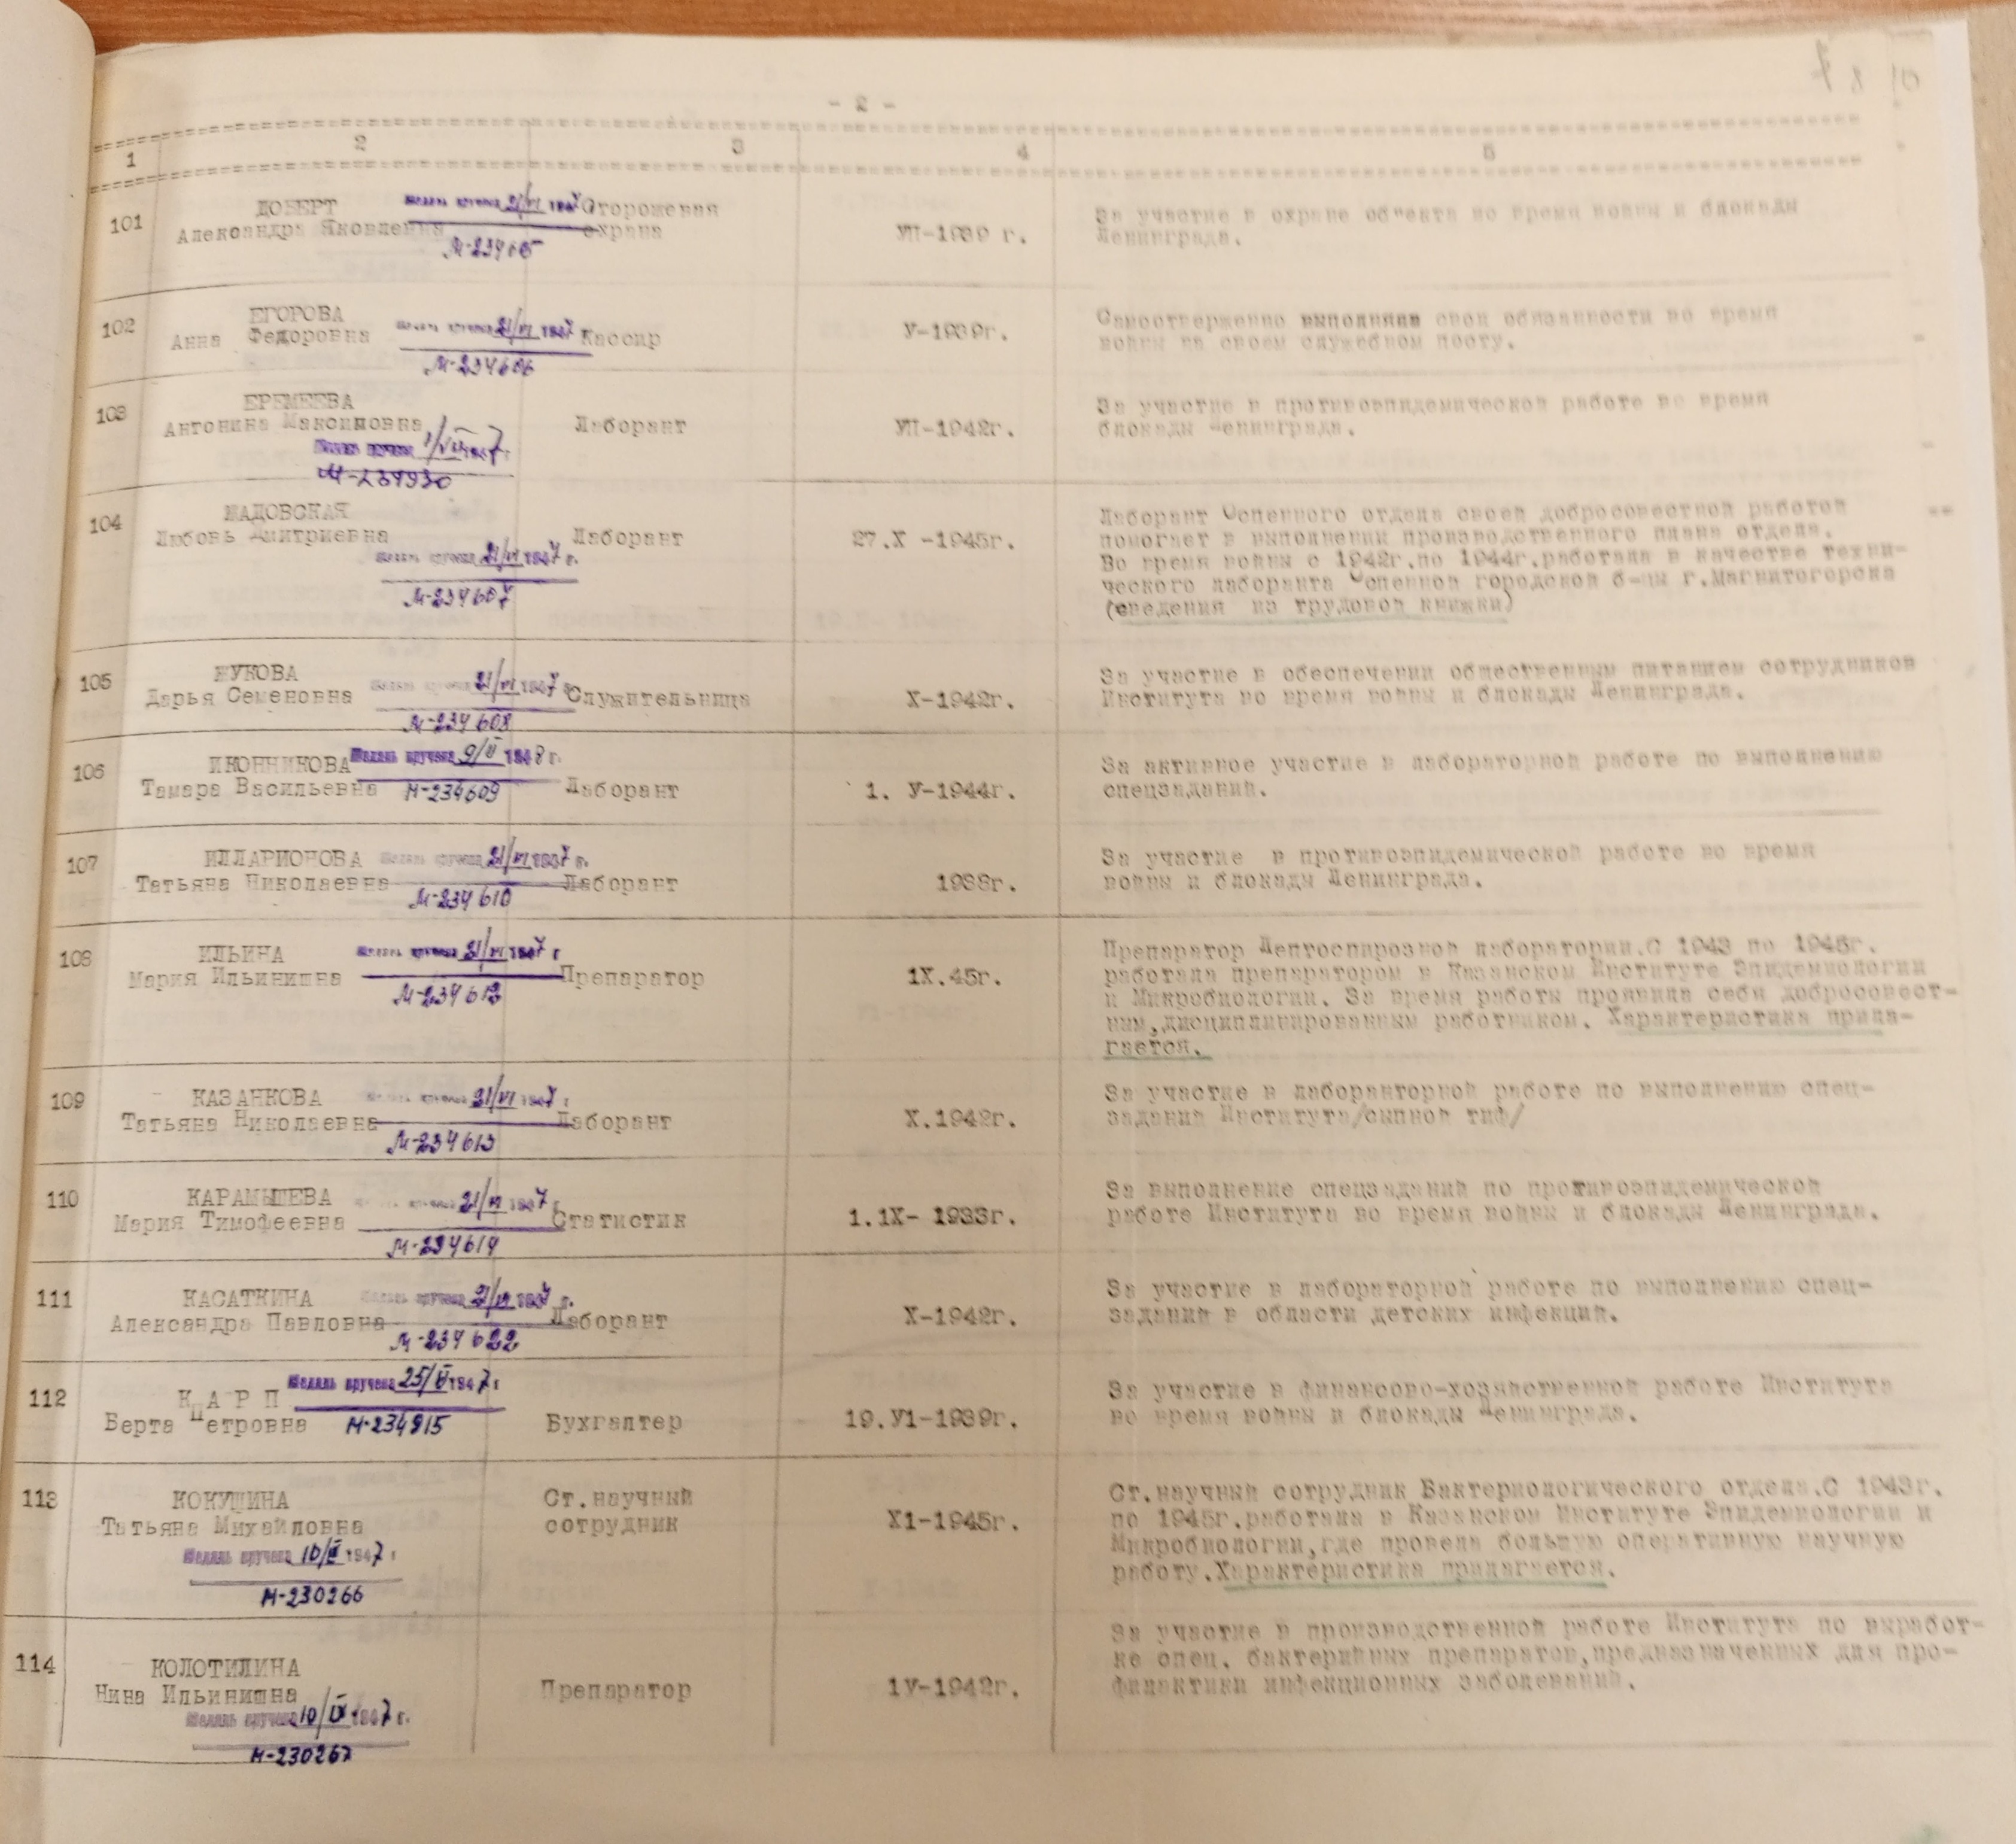 - 2 -
1 2 3 4 5
101 ДОБЕРТ
Александра Яковлевна
Медаль вручена 21/VI 1947
М-234605
Сторожевая
охрана
УП-1939 г.
За участие в охране об"екта во время войны и блокады
Ленинграда.
102 ЕГОРОВА
Анна Федоровна
Медаль вручена 21/VI 1947
М-234606
Кассир
У-1939г.
Самоотверженно выполняла свои обязанности во время
войны на своем служебном посту.
103 ЕРЕМЕЕВА
Антонина Максимовна
Медаль вручена 1947г
М-234930
Лаборант
УП-1942г.
За участие в противоэпидемической работе во время
блокады Ленинграда.
104 ЖАДОВСКАЯ
Любовь Дмитриевна
Медаль вручена 21/VI 1947 г.
М-234607
Лаборант
27.Х -1945г.
Лаборант Оспенного отдела своей добросовестной работой
помогает в выполнении производственного плана отдела.
Во время войны с 1942г.по 1944г.работала в качестве техни-
ческого лаборанта Оспенной городской б-цы г.Магнитогорска
(сведения из трудовой книжки)
105 ЖУКОВА
Дарья Семеновна
Медаль вручена 21/VI 1947 г
М-234608
Служительница
Х-1942г.
За участие в обеспечении общественным питанием сотрудников
Института во время войны и блокады Ленинграда.
106 ИКОННИКОВА
Тамара Васильевна
Медаль вручена 9/II 1948 г.
М-234609
Лаборант
1. У-1944г.
За активное участие в лабораторной работе по выполнению
спецзаданий.
107 ИЛЛАРИОНОВА
Татьяна Николаевна
Медаль вручена 21/VI 1947 г.
М-234610
Лаборант
1938г.
За участие в противоэпидемической работе во время
войны и блокады Ленинграда.
108 ИЛЬИНА
Мария Ильинишна
Медаль вручена 21/VI 1947 г
М-234612
Препаратор
1Х.45г.
Препаратор Лептоспирозной лаборатории.С 1943 по 1945г.
работала препаратором в Казанском Институте Эпидемиологии
и Микробиологии. За время работы проявила себя добросовест-
ным,дисциплинированным работником. Характеристика прила-
гается.
109 КАЗАНКОВА
Татьяна Николаевна
Медаль вручена 21/VI 1947 г
М-234613
Лаборант
Х.1942г.
За участие в лаборанторной работе по выполнению спец-
заданий Института/сыпной тиф/
110 КАРАМЫШЕВА
Мария Тимофеевна
вручена 21/VI 1947 г
М-234614
Статистик
1.1Х- 1933г.
За выполнение спецзаданий по противоэпидемической
работе Института во время войны и блокады Ленинграда.
111 КАСАТКИНА
Александра Павловна
Медаль вручена 21/VI 1947 г.
М-234622
Лаборант
Х-1942г.
За участие в лабораторной работе по выполнению спец-
заданий в области детских инфекций.
112 К А Р П
Берта Петровна
Медаль вручена 25/VI 1947 г
М-234815
Бухгалтер
19.У1-1939г.
За участие в финансово-хозяйственной работе Института
во время войны и блокады Ленинграда.
113 КОКУШИНА
Татьяна Михайловна
Медаль вручена 10/IX 1947 г
М-230266
Ст.научный
сотрудник
Х1-1945г.
Ст.научный сотрудник Бактериологического отдела.С 1943г.
по 1945г.работала в Казанском Институте Эпидемиологии и
Микробиологии,где провела большую оперативную научную
работу.Характеристика прилагается.
114 КОЛОТИЛИНА
Нина Ильинишна
Медаль вручена 10/IX 1947 г.
М-230267
Препаратор
1У-1942г.
За участие в производственной работе Института по выработ-
ке спец. бактерийных препаратов,предназначенных для про-
филактики инфекционных заболеваний.